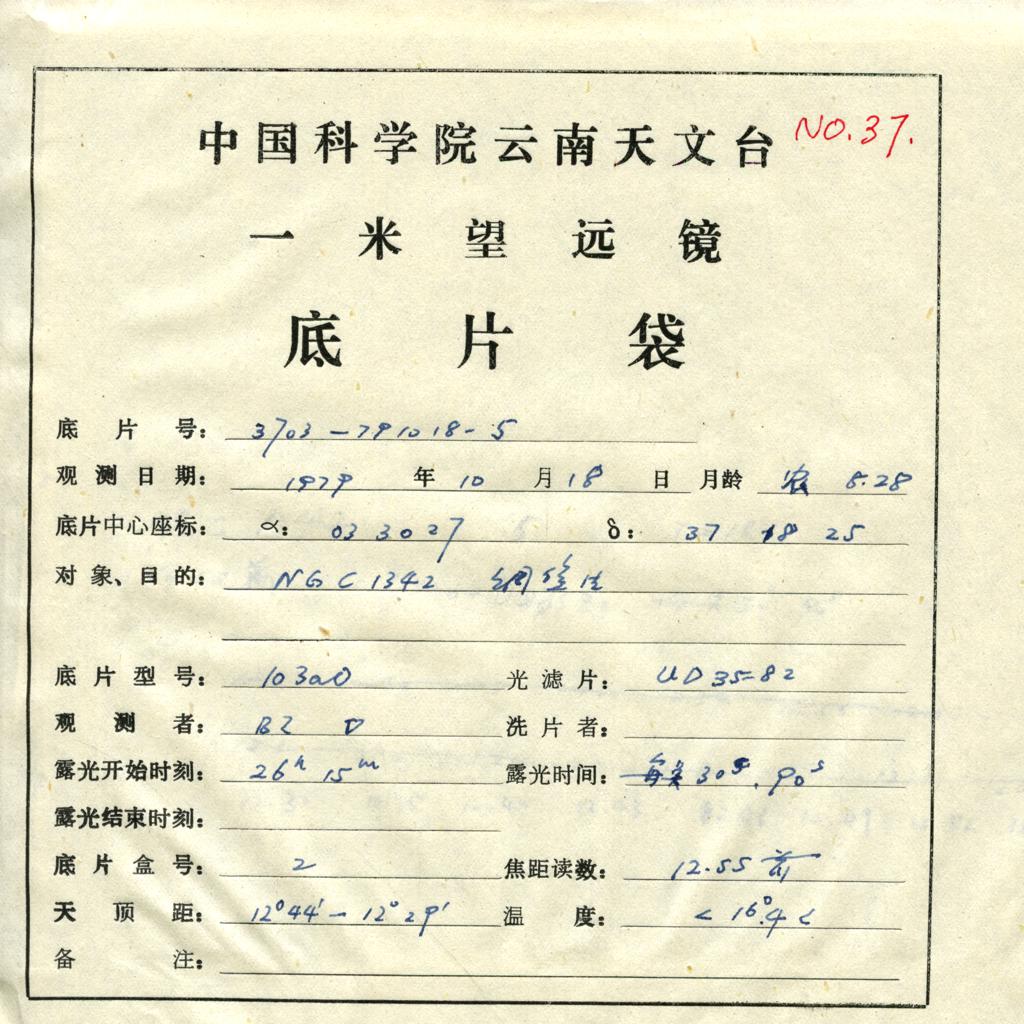 中国科学院云南天文台 NO.37.
一米望远镜
底片袋
底片号: 3703-791018-5
观测日期: 1979年10月18日 月龄 农 8.28
底片中心座标: α: 03 30 27 δ: 37 18 25
对象、目的: NGC1342
底片型号: 103aO 光滤片:
观测者: 洗片者:
露光开始时刻: 26h 15m 露光时间: 30s, 90s
露光结束时刻:
底片盒号: 2 焦距读数: 12.55 前
天顶距: 12°44′-12°29′ 温度: < 16°.4 <
备注: